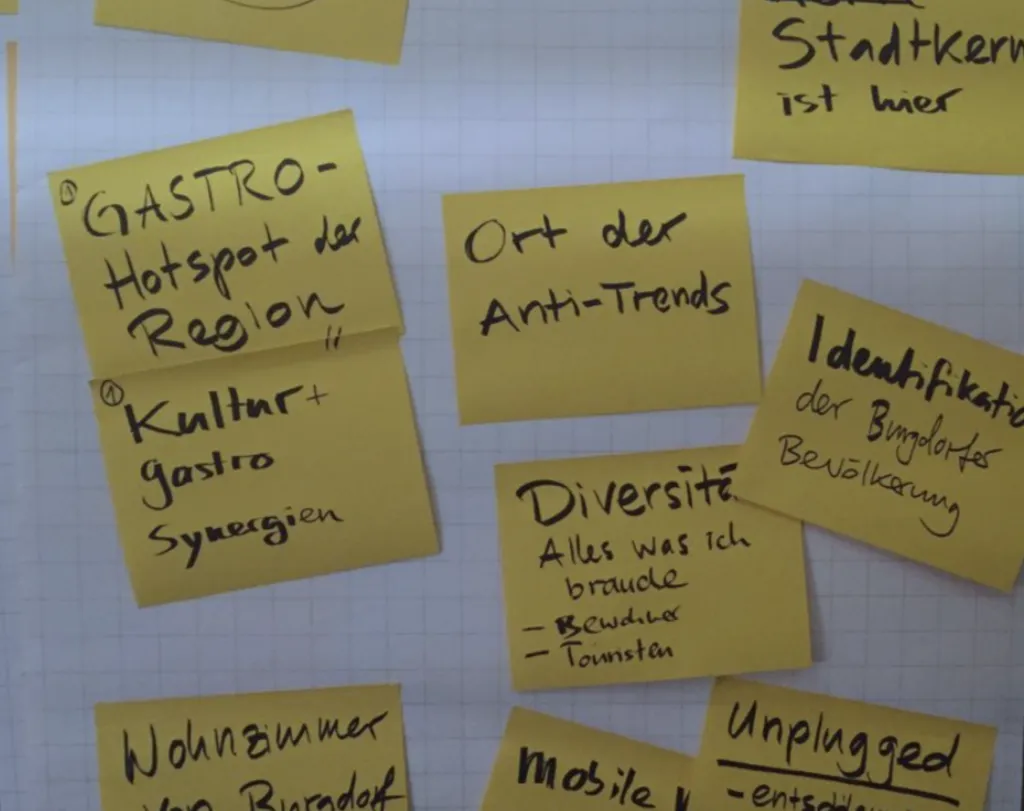 Stadtkern
ist hier
① GASTRO-
Hotspot der
Region
"
① Kultur+
gastro
Synergien
Ort der
Anti-Trends
Identifikatio
der Burgdorfer
Bevölkerung
Diversitä
Alles was ich
brauche
- Bewohner
- Touristen
Wohnzimmer
von Burgdorf
mobile
Unplugged